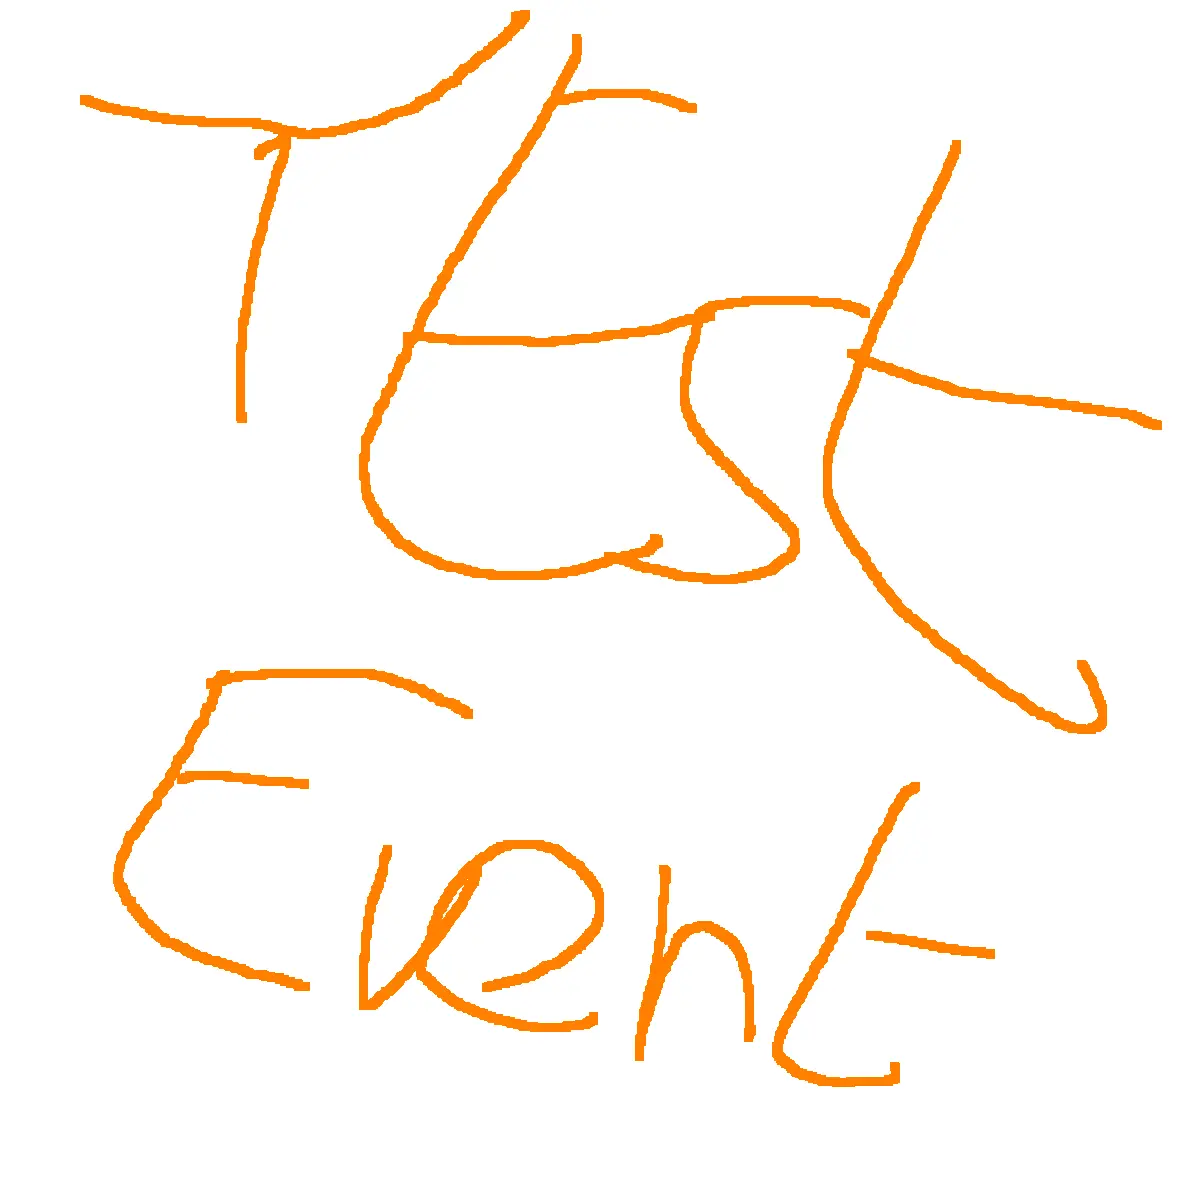 TEst
Event